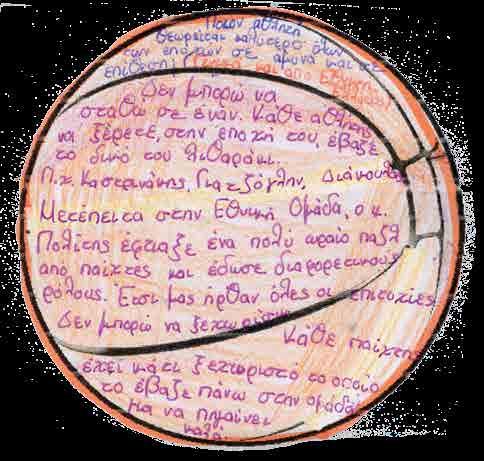 Ποιον αθλητή
θεωρείται καλύτερο όλων
των εποχών σε άμυνα και σε
επίθεση; (γενικά και από Εθνική
Ελλάδος)
Δεν μπορώ να
σταθώ σε έναν. Κάθε αθλητής
να ξέρετε, στην εποχή του, έβαζε
το δικό του λιθαράκι.
Π.χ. Καστρινάκης, Γιατζόγλου, Διάκουλας
Μετέπειτα στην Εθνική Ομάδα, ο κ.
Πολίτης έφτιαξε ένα πολύ ωραίο παζλ
από παίχτες και έδωσε διαφορετικούς
ρόλους. Έτσι μας ήρθαν όλες οι επιτυχίες.
Δεν μπορώ να ξεχωρίσω
Κάθε παίχτης
έχει κάτι ξεχωριστό το οποίο
το έβαζε πάνω στην ομάδα
για να πηγαίνει
καλά.